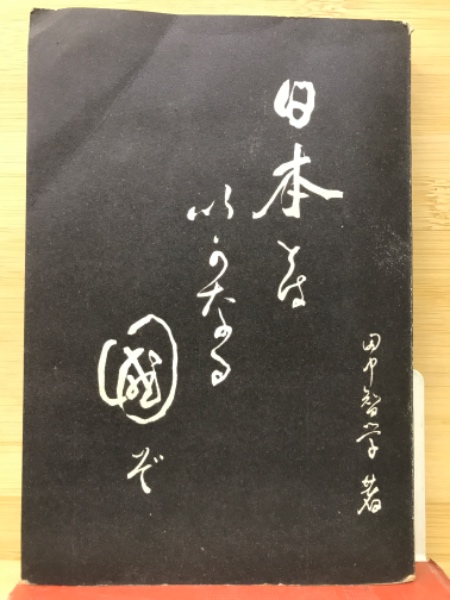 日本とは
いかなる
國ぞ
田中智学 著